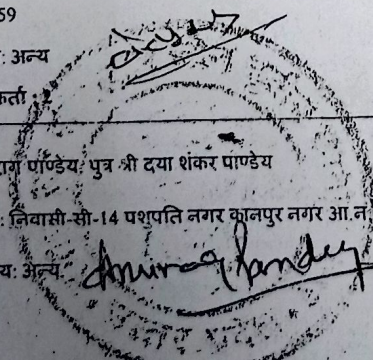 59
: अन्य
कर्ता :
राग पाण्डेय, पुत्र श्री दया शंकर पाण्डेय
: निवासी-सी-14 पशुपति नगर कानपुर नगर आ.न.
य: अन्य
Anurag Pandey